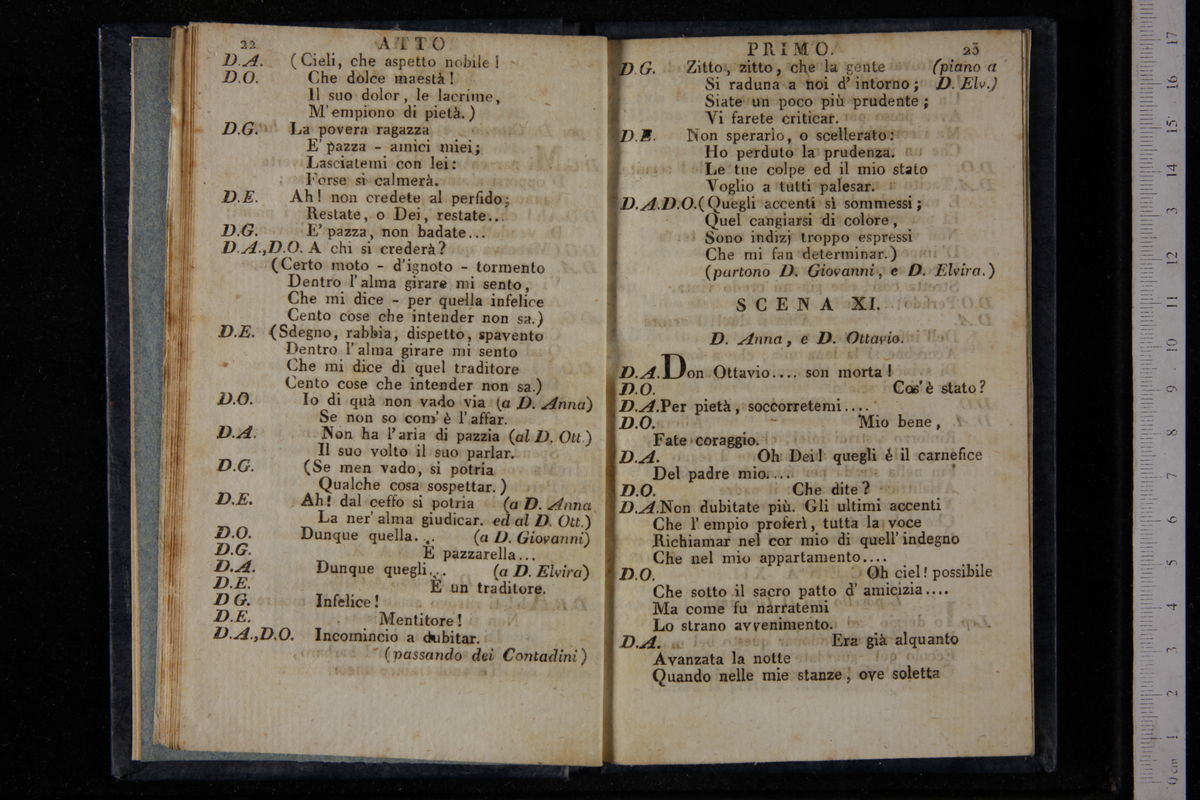 22
ATTO
D.A. (Cieli, che aspetto nobile!
D.O. Che dolce maestà!
Il suo dolor, le lacrime,
M'empiono di pietà.)
D.G. La povera ragazza
E' pazza - amici miei;
Lasciatemi con lei:
Forse si calmerà.
D.E. Ah! non credete al perfido;
Restate, o Dei, restate...
D.G. E' pazza, non badate...
D.A.,D.O. A chi si crederà?
(Certo moto - d'ignoto - tormento
Dentro l'alma girare mi sento,
Che mi dice - per quella infelice
Cento cose che intender non sa.)
D.E. (Sdegno, rabbia, dispetto, spavento
Dentro l'alma girare mi sento
Che mi dice di quel traditore
Cento cose che intender non sa.)
D.O. Io di quà non vado via (a D. Anna)
Se non so com'è l'affar.
D.A. Non ha l'aria di pazzia (al D. Ott.)
Il suo volto il suo parlar.
D.G. (Se men vado, si potria
Qualche cosa sospettar.)
D.E. Ah! dal ceffo si potria (a D. Anna
La ner'alma giudicar. ed al D. Ott.)
D.O. Dunque quella... (a D. Giovanni)
D.G. È pazzarella...
D.A. Dunque quegli... (a D. Elvira)
D.E. È un traditore.
D G. Infelice!
D.E. Mentitore!
D.A.,D.O. Incomincio a dubitar.
(passando dei Contadini)
PRIMO.
23
D.G. Zitto, zitto, che la gente (piano a
Si raduna a noi d'intorno; D. Elv.)
Siate un poco più prudente;
Vi farete criticar.
D.E. Non sperarlo, o scellerato:
Ho perduto la prudenza.
Le tue colpe ed il mio stato
Voglio a tutti palesar.
D.A.D.O.(Quegli accenti sì sommessi;
Quel cangiarsi di colore,
Sono indizj troppo espressi
Che mi fan determinar.)
(partono D. Giovanni, e D. Elvira.)
SCENA XI.
D. Anna, e D. Ottavio.
D.A. Don Ottavio.... son morta!
D.O. Cos'è stato?
D.A. Per pietà, soccorretemi....
D.O. Mio bene,
Fate coraggio.
D.A. Oh Dei! quegli è il carnefice
Del padre mio....
D.O. Che dite?
D.A. Non dubitate più. Gli ultimi accenti
Che l'empio proferì, tutta la voce
Richiamar nel cor mio di quell'indegno
Che nel mio appartamento....
D.O. Oh ciel! possibile
Che sotto il sacro patto d'amicizia....
Ma come fu narratemi
Lo strano avvenimento.
D.A. Era già alquanto
Avanzata la notte
Quando nelle mie stanze, ove soletta